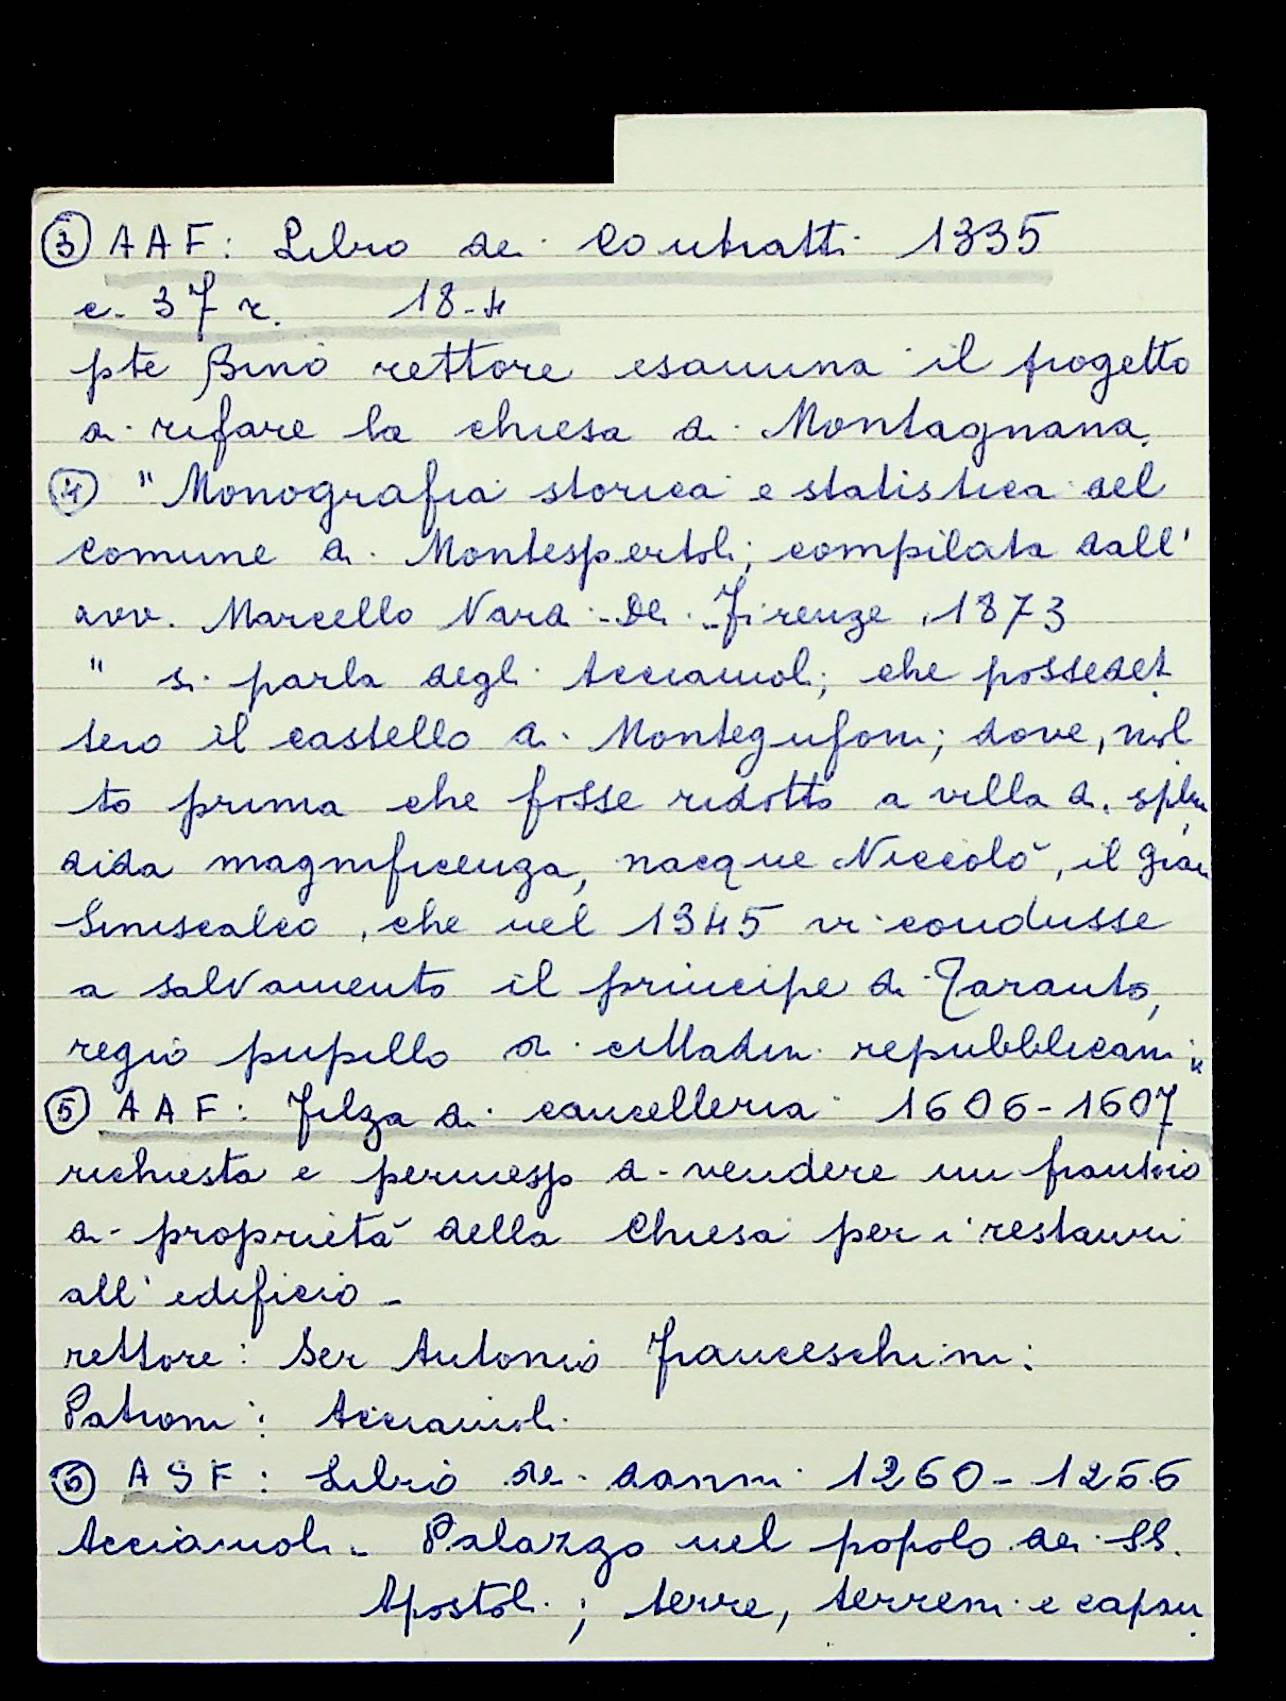 ③ AAF: Libro dei Contratti 1335
c. 37 r. 18-4
pte Bino rettore esamina il progetto
di rifare la chiesa di Montagnana.
④ "Monografia storica e statistica del
Comune di Montespertoli; compilata dall'
avv. Marcello Nardi-Dei. Firenze, 1873
" si parla degli Acciaiuoli; che possedet
tero il castello di Montegufoni; dove, mol
to prima che fosse ridotto a villa di splen
dida magnificenza, nacque Niccolò, il gran
Siniscalco, che nel 1345 vi condusse
a salvamento il principe di Taranto,
regio pupillo di cittadini repubblicani"
⑤ AAF: Filza di cancelleria 1606-1607
richiesta e permesso di vendere un frantoio
di proprietà della Chiesa per i restauri
all'edificio -
rettore: Ser Antonio Franceschini:
Patroni: Acciaiuoli
⑥ ASF: Libro dei danni 1260-1266
Acciaiuoli - Palazzo nel popolo dei SS.
Apostoli; terre, terreni e